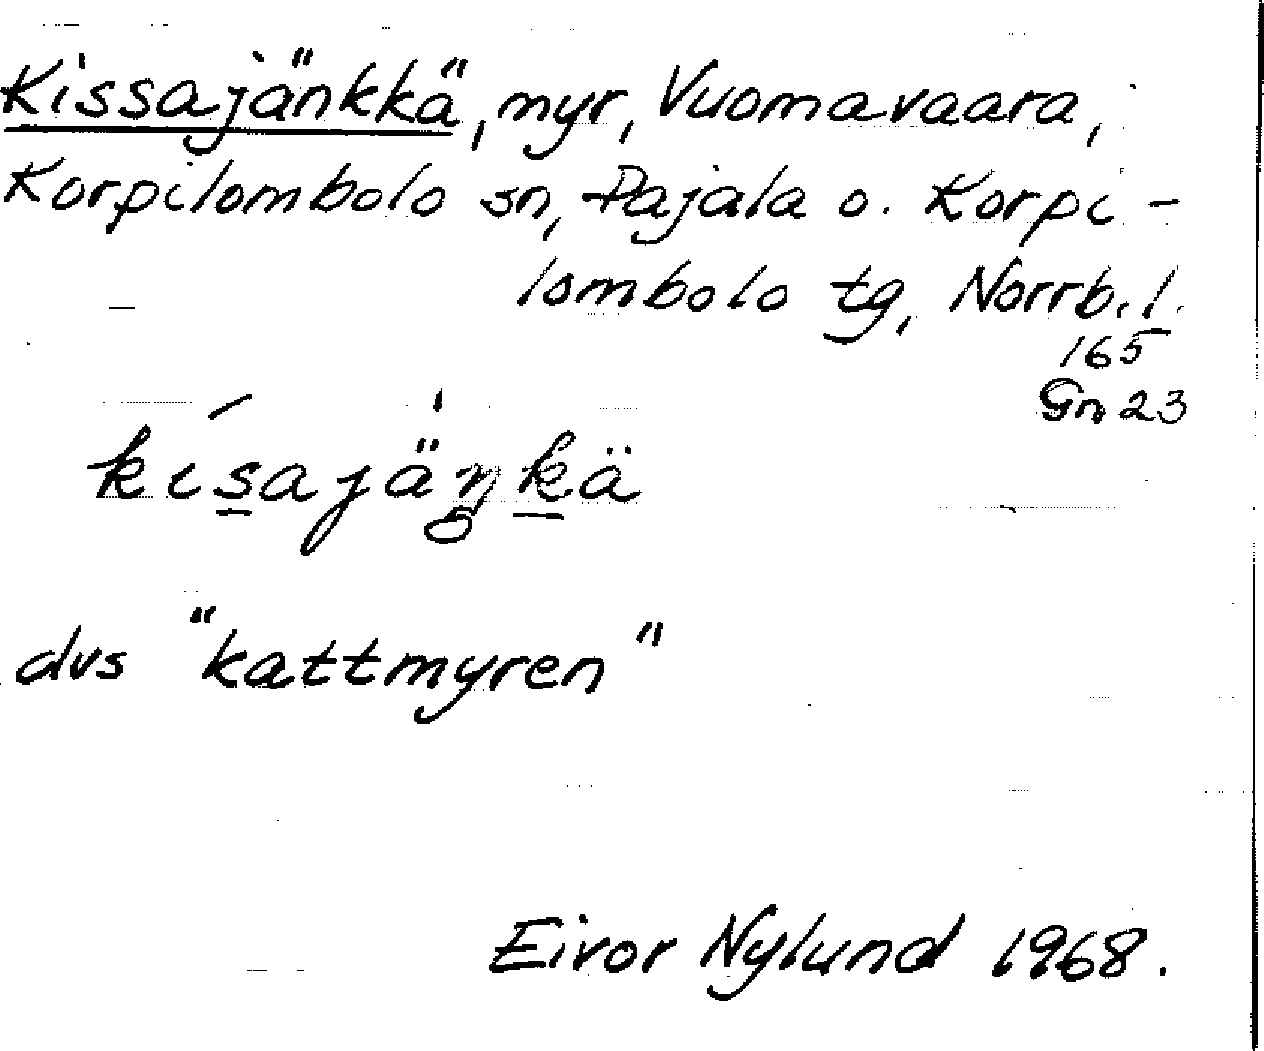 Kissajänkkä, myr, Vuomavaara,
Korpilombolo sn, Pajala o. Korpi-
lombolo tg, Norrb. l.
165
Gn 23
kisajäŋkä
dvs "kattmyren"
Eivor Nylund 1968.